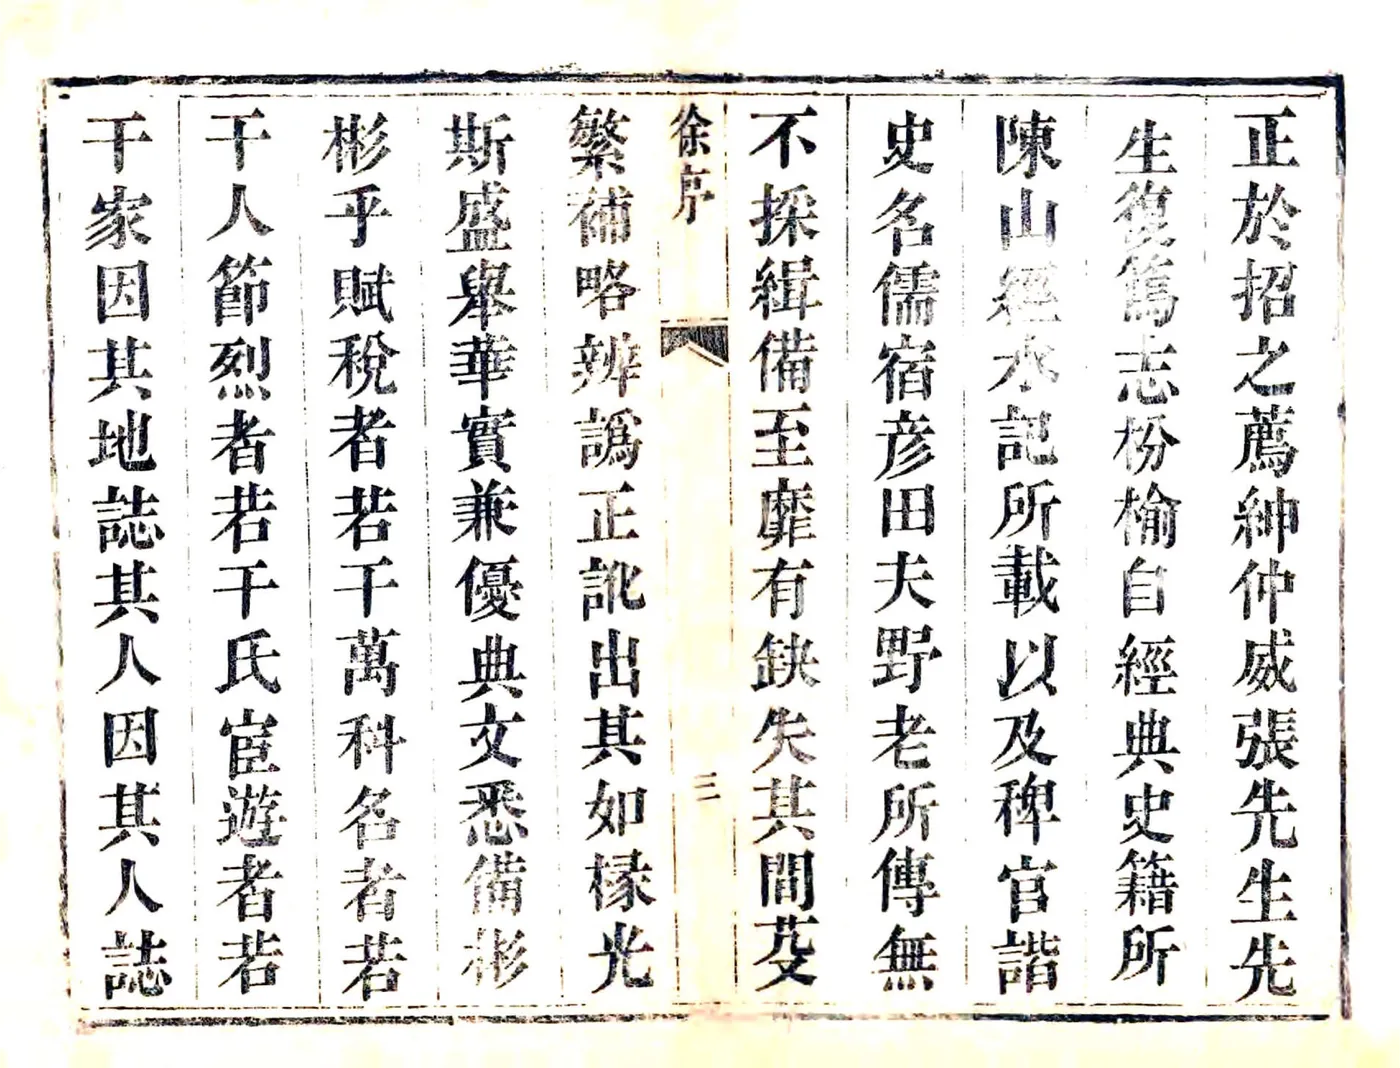 正於招之薦紳仲威張先生先
生復篤志枌榆自經典史籍所
陳山經水記所載以及稗官諧
史名儒宿彦田夫野老所傳無
不採緝備至靡有缺失其間芟
徐序
三
繁補略辨譌正訛出其如椽光
斯盛舉華實兼優典文悉備彬
彬乎賦稅者若干萬科名者若
干人節烈者若干氏宦遊者若
干家因其地誌其人因其人誌